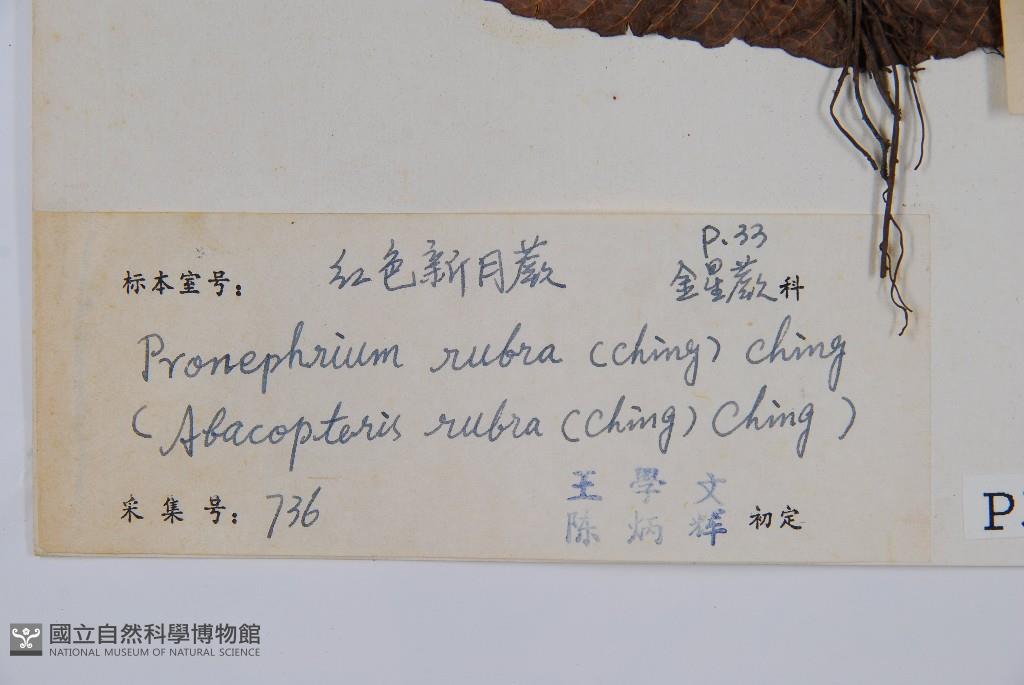 P.33
标本室号： 红色新月蕨 金星蕨科
Pronephrium rubra (Ching) Ching
(Abacopteris rubra (Ching) Ching)
采集号：736
王學文
陈炳辉 初定
P
國立自然科學博物館
NATIONAL MUSEUM OF NATURAL SCIENCE